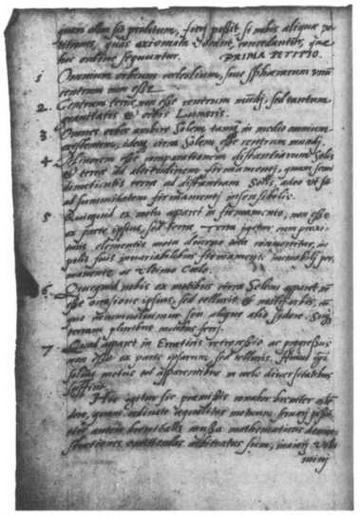 quam olim sit proditum, fieri possit, si nobis aliquæ pe
titiones, quas axiomata vocant, concedantur, quæ
hoc ordine sequuntur. PRIMA PETITIO.
1 Omnium orbium cœlestium, sive sphærarum unum
centrum non esse.
2. Centrum terræ non esse centrum mundi, sed tantum
gravitatis et orbis Lunaris.
3 Omnes orbes ambire Solem, tanquam in medio omnium
existentem, ideoque circa Solem esse centrum mundi.
4 Minorem esse comparationem distantiarum Solis
et terræ ad altitudinem firmamenti, quam semi
dimetientis terræ ad distantiam Solis, adeo ut sit
ad summitatem firmamenti insensibilis.
5 Quicquid ex motu apparet in firmamento, non esse
ex parte ipsius, sed terræ. Terra igitur cum proxi
mis elementis motu diurno tota convertitur, in
polis suis invariabilibus firmamento immobili per
manente ac ultimo Cœlo.
6 Quicquid nobis ex motibus circa Solem apparet non
esse occasione ipsius, sed telluris et nostri orbis, cum
quo
ceu aliquo alio sydere. Sicque
terram pluribus motibus ferri.
7 Quod apparet in Erraticis retrocessio ac progressus
non esse ex parte ipsarum, sed telluris. Huius igitur
solius motus tot apparentibus in cœlo diversitatibus
sufficit.
His igitur sic præmissis conabor breviter osten
dere, quam ordinate æqualitas motuum servari possit.
Hic autem brevitatis causa mathematicas demon
strationes omittendas arbitratus sum, maiori volu
mini